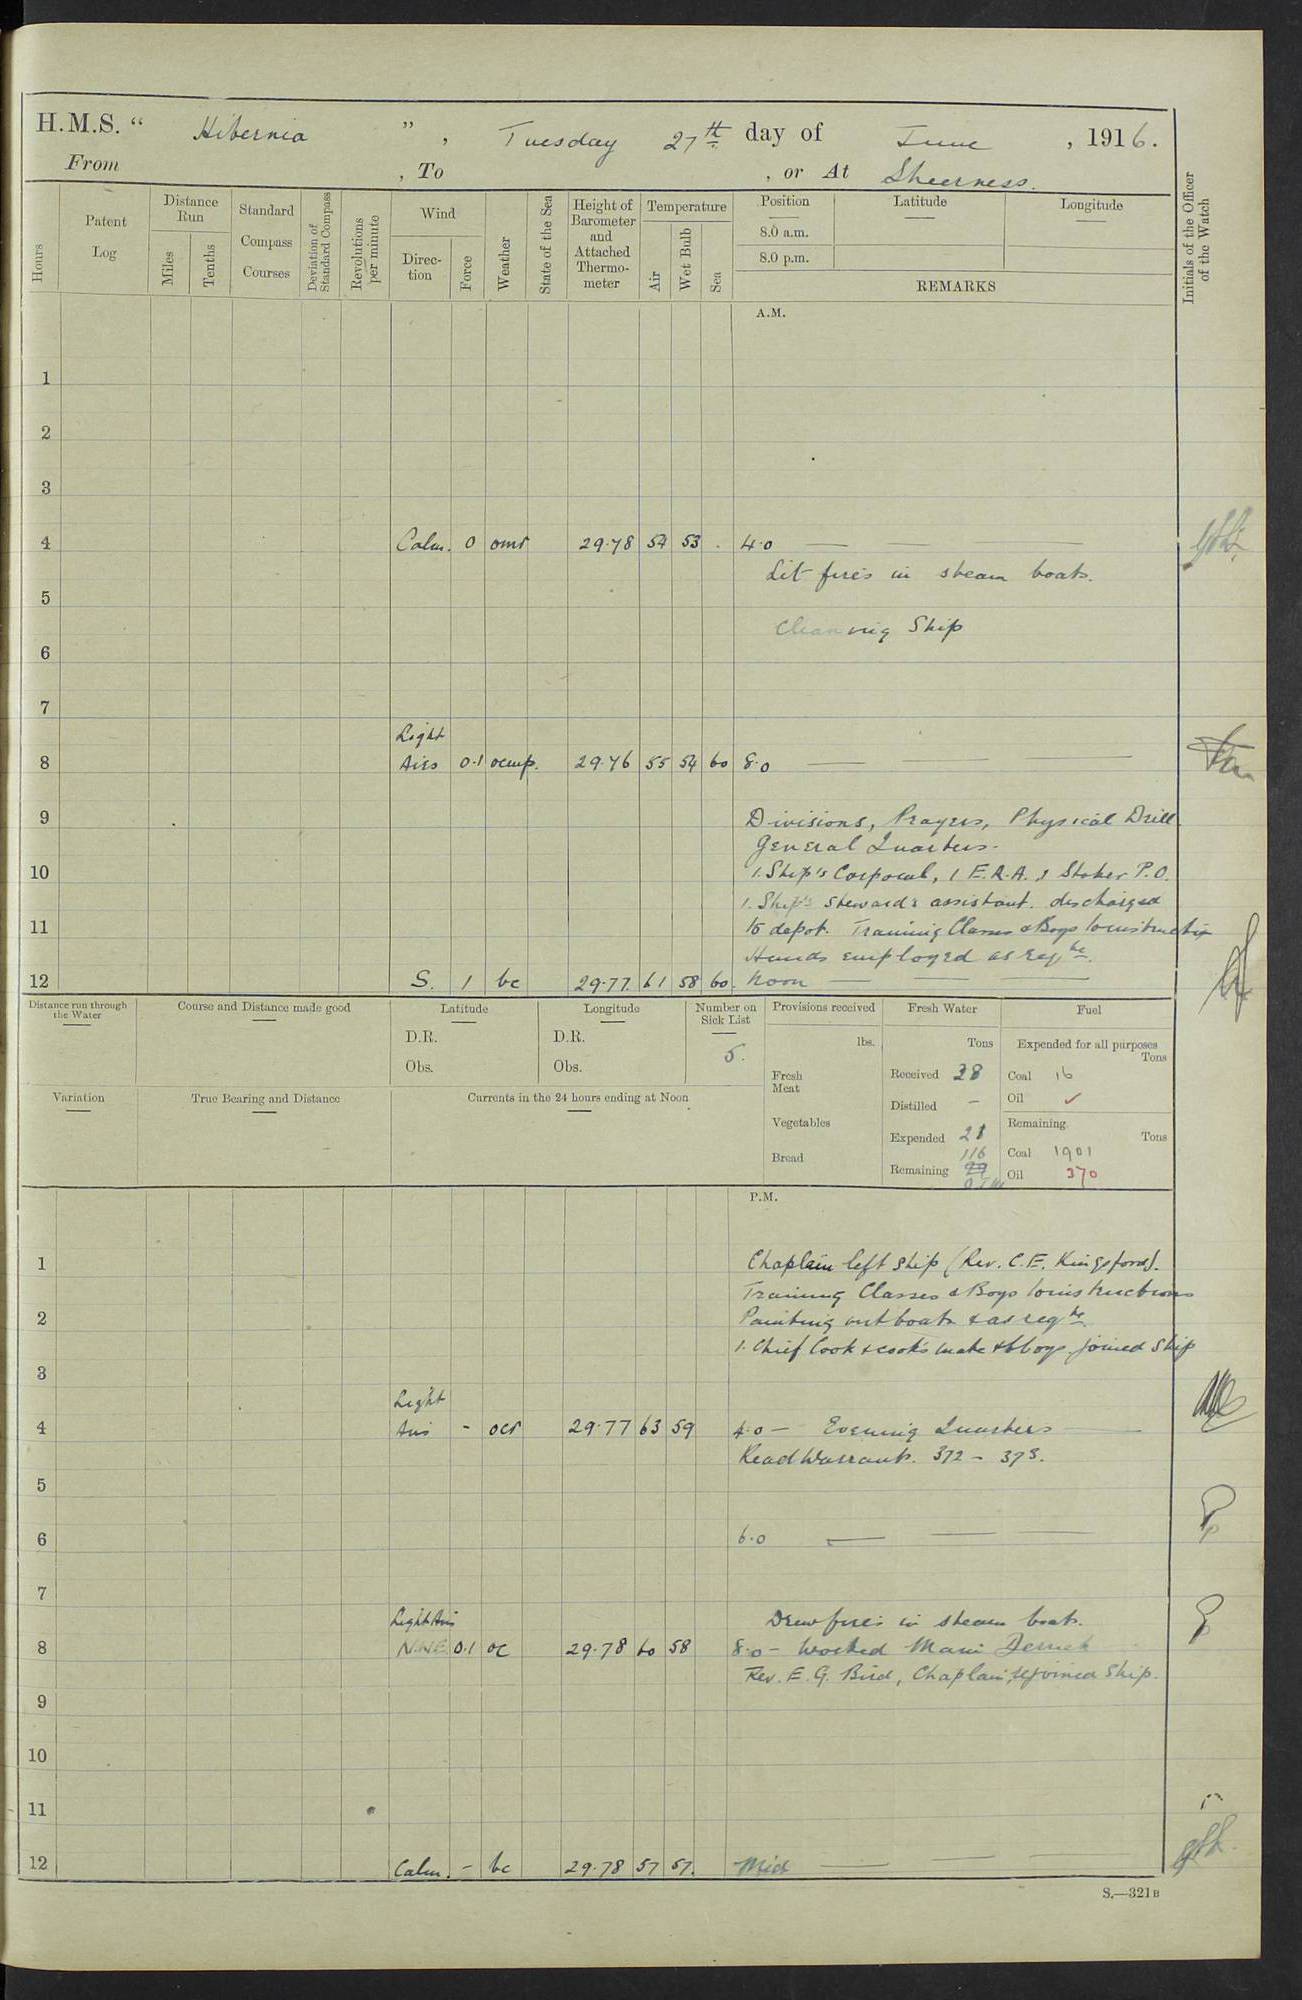 H.M.S. " Hibernia ", Tuesday 27th day of June, 1916.
From , To , or At Sheerness.
Hours
Patent Log
Distance Run
Miles
Tenths
Standard Compass Courses
Deviation of Standard Compass
Revolutions per minute
Wind
Direction
Force
Weather
State of the Sea
Height of Barometer and Attached Thermometer
Temperature
Air
Wet Bulb
Sea
Position
8.0 a.m.
8.0 p.m.
Latitude
Longitude
REMARKS
Initials of the Officer of the Watch
A.M.
1
2
3
4 Calm. 0 omr 29.78 54 53 . 4.0
Lit fires in steam boats.
5
Cleaning Ship
6
7
Light
8 Airs 0.1 ocmp. 29.76 55 54 60 8.0
9 Divisions, Prayers, Physical Drill.
General Quarters.
10 1. Ship's Corporal, 1 E.R.A. 1 Stoker P.O.
1. Ship's Steward's assistant. discharged
11 to depot. Training Classes & Boys to instruction
Hands employed as reqte.
12 S. 1 bc 29.77 61 58 60. Noon
Distance run through the Water
Course and Distance made good
Latitude
D.R.
Obs.
Longitude
D.R.
Obs.
Number on Sick List
5.
Provisions received
lbs.
Fresh Meat
Vegetables
Bread
Fresh Water
Tons
Received 38
Distilled –
Expended 21
116
Remaining 99
Fuel
Expended for all purposes
Tons
Coal 16
Oil ✓
Remaining
Tons
Coal 1901
Oil 370
Variation
True Bearing and Distance
Currents in the 24 hours ending at Noon
P.M.
1 Chaplain left ship (Rev. C.E. Kingsford).
Training Classes & Boys to instructions
2 Painting out boats & as reqte.
1. Chief Cook & cook's mate & 6 boys joined Ship
3
Light
4 Airs - ocr 29.77 63 59 4.0 – Evening Quarters
Read Warrants. 372 – 373.
5
6 6.0
7
Light Airs Drew fires in steam boats.
8 NNE 0.1 oc 29.78 60 58 8.0 – Worked Main Derrick
Rev. E. G. Bird, Chaplain, rejoined Ship.
9
10
11
12 Calm. – bc 29.78 57 57. Mid
S.—321B